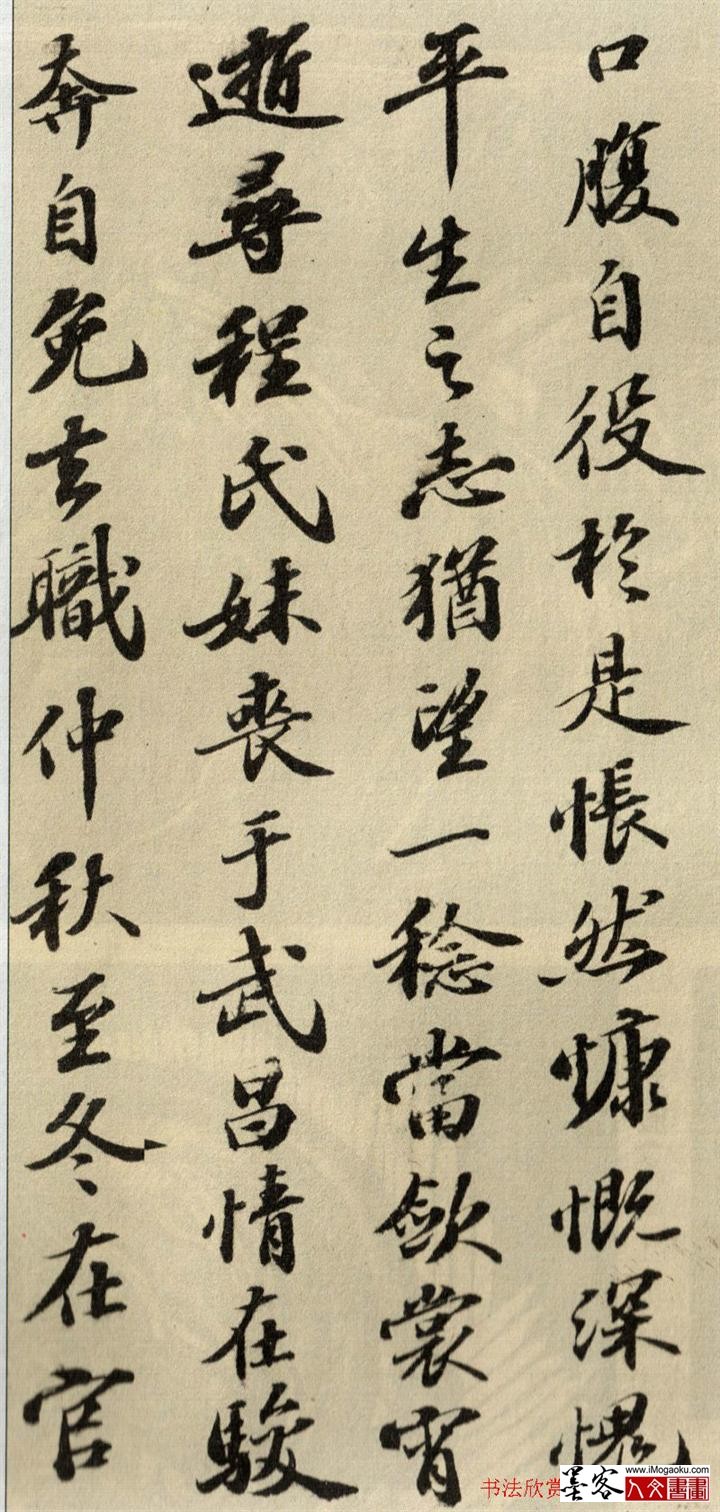 口腹自役於是悵然慷慨深愧
平生之志猶望一稔當歛裳宵
逝尋程氏妹喪于武昌情在駿
奔自免去職仲秋至冬在官
书法欣赏
墨客
www.iMogaoku.com
人文書畫